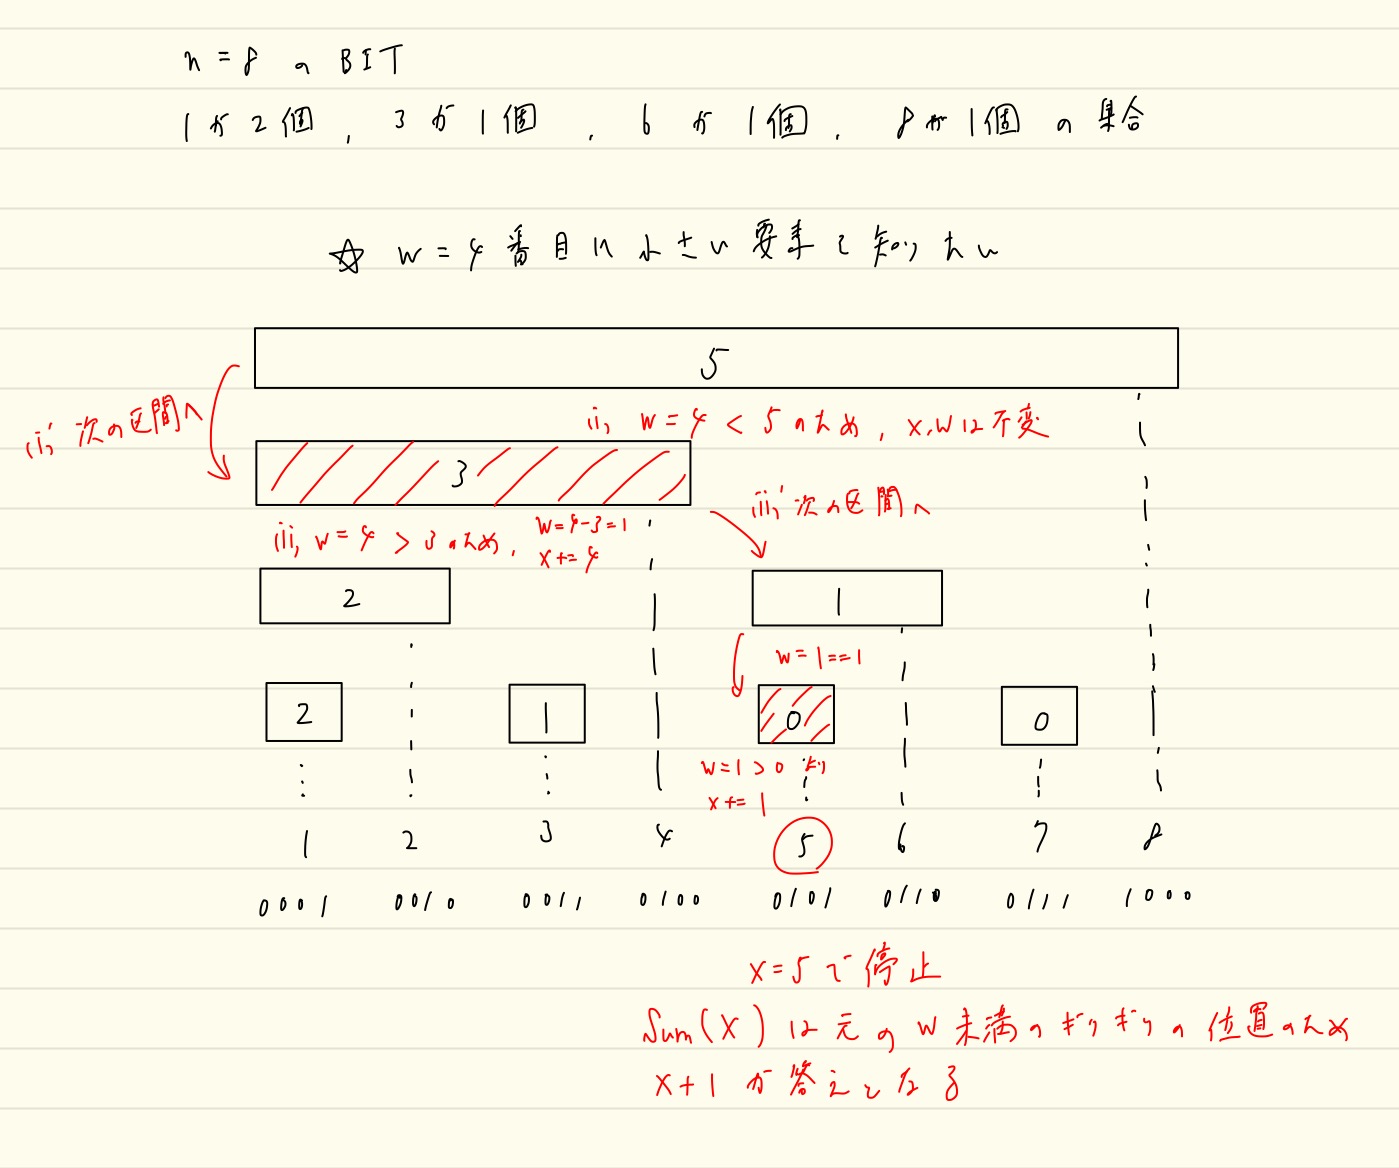 n=8 の BIT
1が2個, 3が1個, 6が1個, 8が1個の集合
☆ w=4番目に小さい要素を知りたい
5
ii, w=4<5のため, x,wは不変
ii,' 次の区間へ
3
iii, w=4>3のため,
w=4-3=1
x+=4
iii,' 次の区間へ
2
1
w=1==1
2
1
0
0
w=1>0 より
x+=1
1 2 3 4 5 6 7 8
0001 0010 0011 0100 0101 0110 0111 1000
x=5で停止
Sum(x)は元のw未満のギリギリの位置のため
x+1が答えとなる